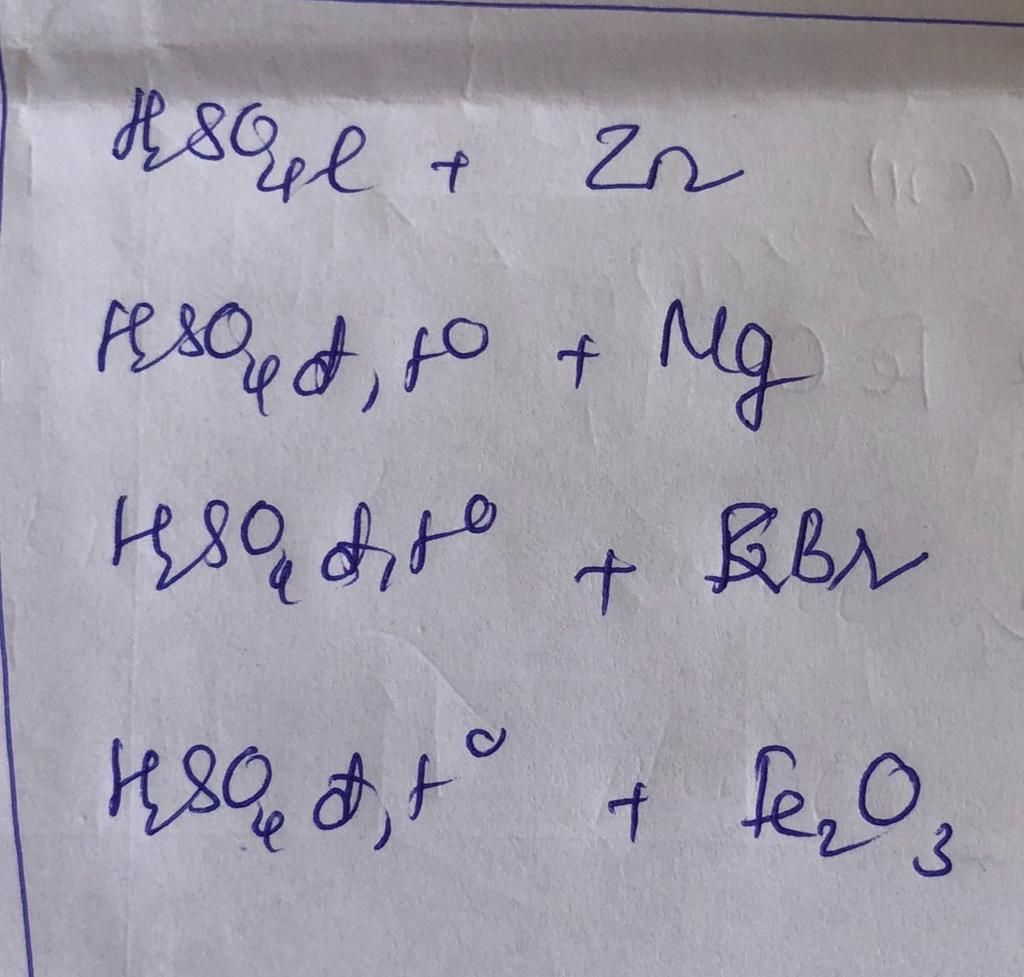 H₂SO₄ l + Zn
H₂SO₄ đ, t° + Mg
H₂SO₄ đ, t° + KBr
H₂SO₄ đ, t° + Fe₂O₃